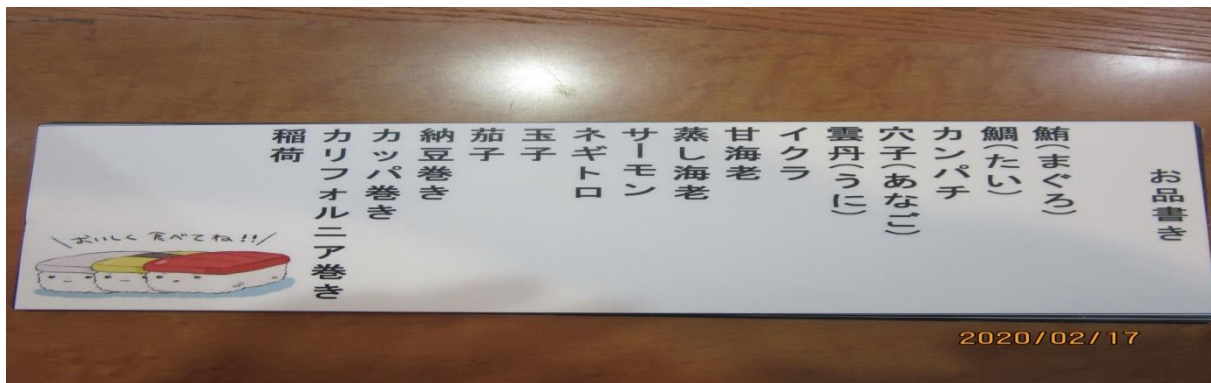 お品書き
鮪(まぐろ)
鯛(たい)
カンパチ
穴子(あなご)
雲丹(うに)
イクラ
甘海老
蒸し海老
サーモン
ネギトロ
玉子
茄子
納豆巻き
カッパ巻き
カリフォルニア巻き
稲荷
おいしく食べてね!!
2020/02/17